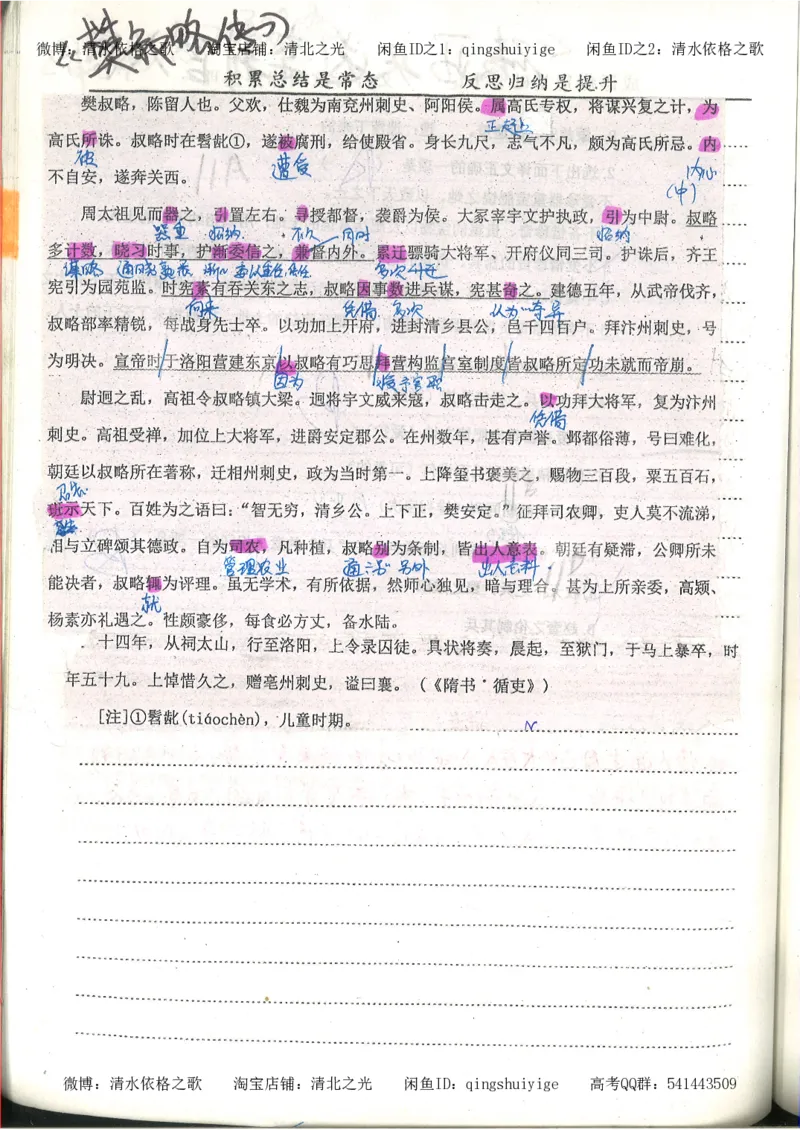 樊叔略传
微博：清水依格之歌 淘宝店铺：清北之光 闲鱼ID之1：qingshuiyige 闲鱼ID之2：清水依格之歌
积累总结是常态 反思归纳是提升
樊叔略，陈留人也。父欢，仕魏为南兖州刺史、阿阳侯。属高氏专权，将谋兴复之计，为
正赶上
高氏所诛。叔略时在髫龀①，遂被腐刑，给使殿省。身长九尺，志气不凡，颇为高氏所忌。内
被 遭受 内心
不自安，遂奔关西。
（中）
周太祖见而器之，引置左右。寻授都督，袭爵为侯。大冢宰宇文护执政，引为中尉。叔略
器重 招纳 不久 同时 招纳
多计数，晓习时事，护渐委信之，兼督内外。累迁骠骑大将军、开府仪同三司。护诛后，齐王
谋略 通晓熟悉 渐渐 多次升迁
宪引为园苑监。时宪素有吞关东之志，叔略因事数进兵谋，宪甚奇之。建德五年，从武帝伐齐，
向来 凭借 多次 认为…奇异
叔略部率精锐，每战身先士卒。以功加上开府，进封清乡县公，邑千四百户。拜汴州刺史，号
为明决。宣帝时于洛阳营建东京以叔略有巧思拜营构监宫室制度皆叔略所定功未就而帝崩。
因为 授予官职
尉迥之乱，高祖令叔略镇大梁。迥将宇文威来寇，叔略击走之。以功拜大将军，复为汴州
凭借
刺史。高祖受禅，加位上大将军，进爵安定郡公。在州数年，甚有声誉。邺都俗薄，号曰难化，
朝廷以叔略所在著称，迁相州刺史，政为当时第一。上降玺书褒美之，赐物三百段，粟五百石，
班示天下。百姓为之语曰：“智无穷，清乡公。上下正，樊安定。”征拜司农卿，吏人莫不流涕，
相与立碑颂其德政。自为司农，凡种植，叔略别为条制，皆出人意表。朝廷有疑滞，公卿所未
管理农业 另外 出人意料
能决者，叔略辄为评理。虽无学术，有所依据，然师心独见，暗与理合。甚为上所亲委，高颎、
就
杨素亦礼遇之。性颇豪侈，每食必方丈，备水陆。
十四年，从祠太山，行至洛阳，上令录囚徒。具状将奏，晨起，至狱门，于马上暴卒，时
年五十九。上悼惜久之，赠亳州刺史，谥曰襄。（《隋书·循吏》）
[注]①髫龀(tiáochèn)，儿童时期。
微博：清水依格之歌 淘宝店铺：清北之光 闲鱼ID：qingshuiyige 高考QQ群：541443509